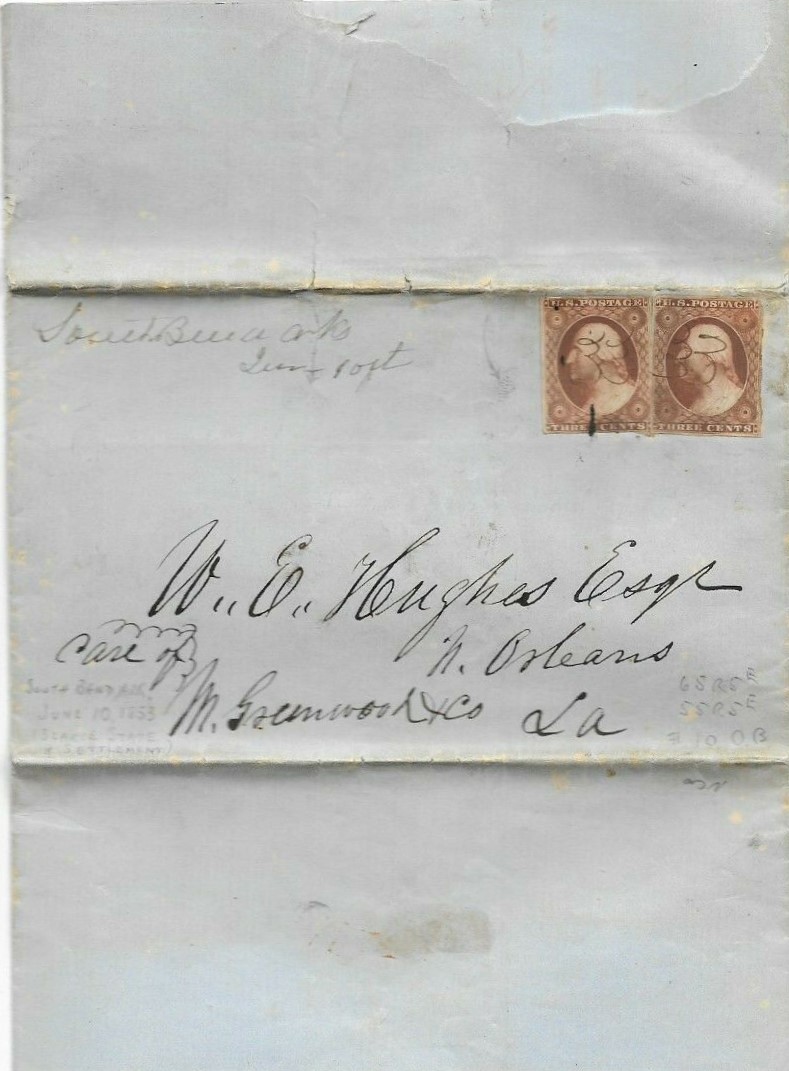 South Bend Arks
June 10th
U.S. POSTAGE U.S. POSTAGE
THREE CENTS THREE CENTS
W. E. Hughes Esqr
Care of
N. Orleans
M. Greenwood & Co La
SOUTH BEND ARK.
JUNE 10, 1853
(SCARCE STATE
& SETTLEMENT)